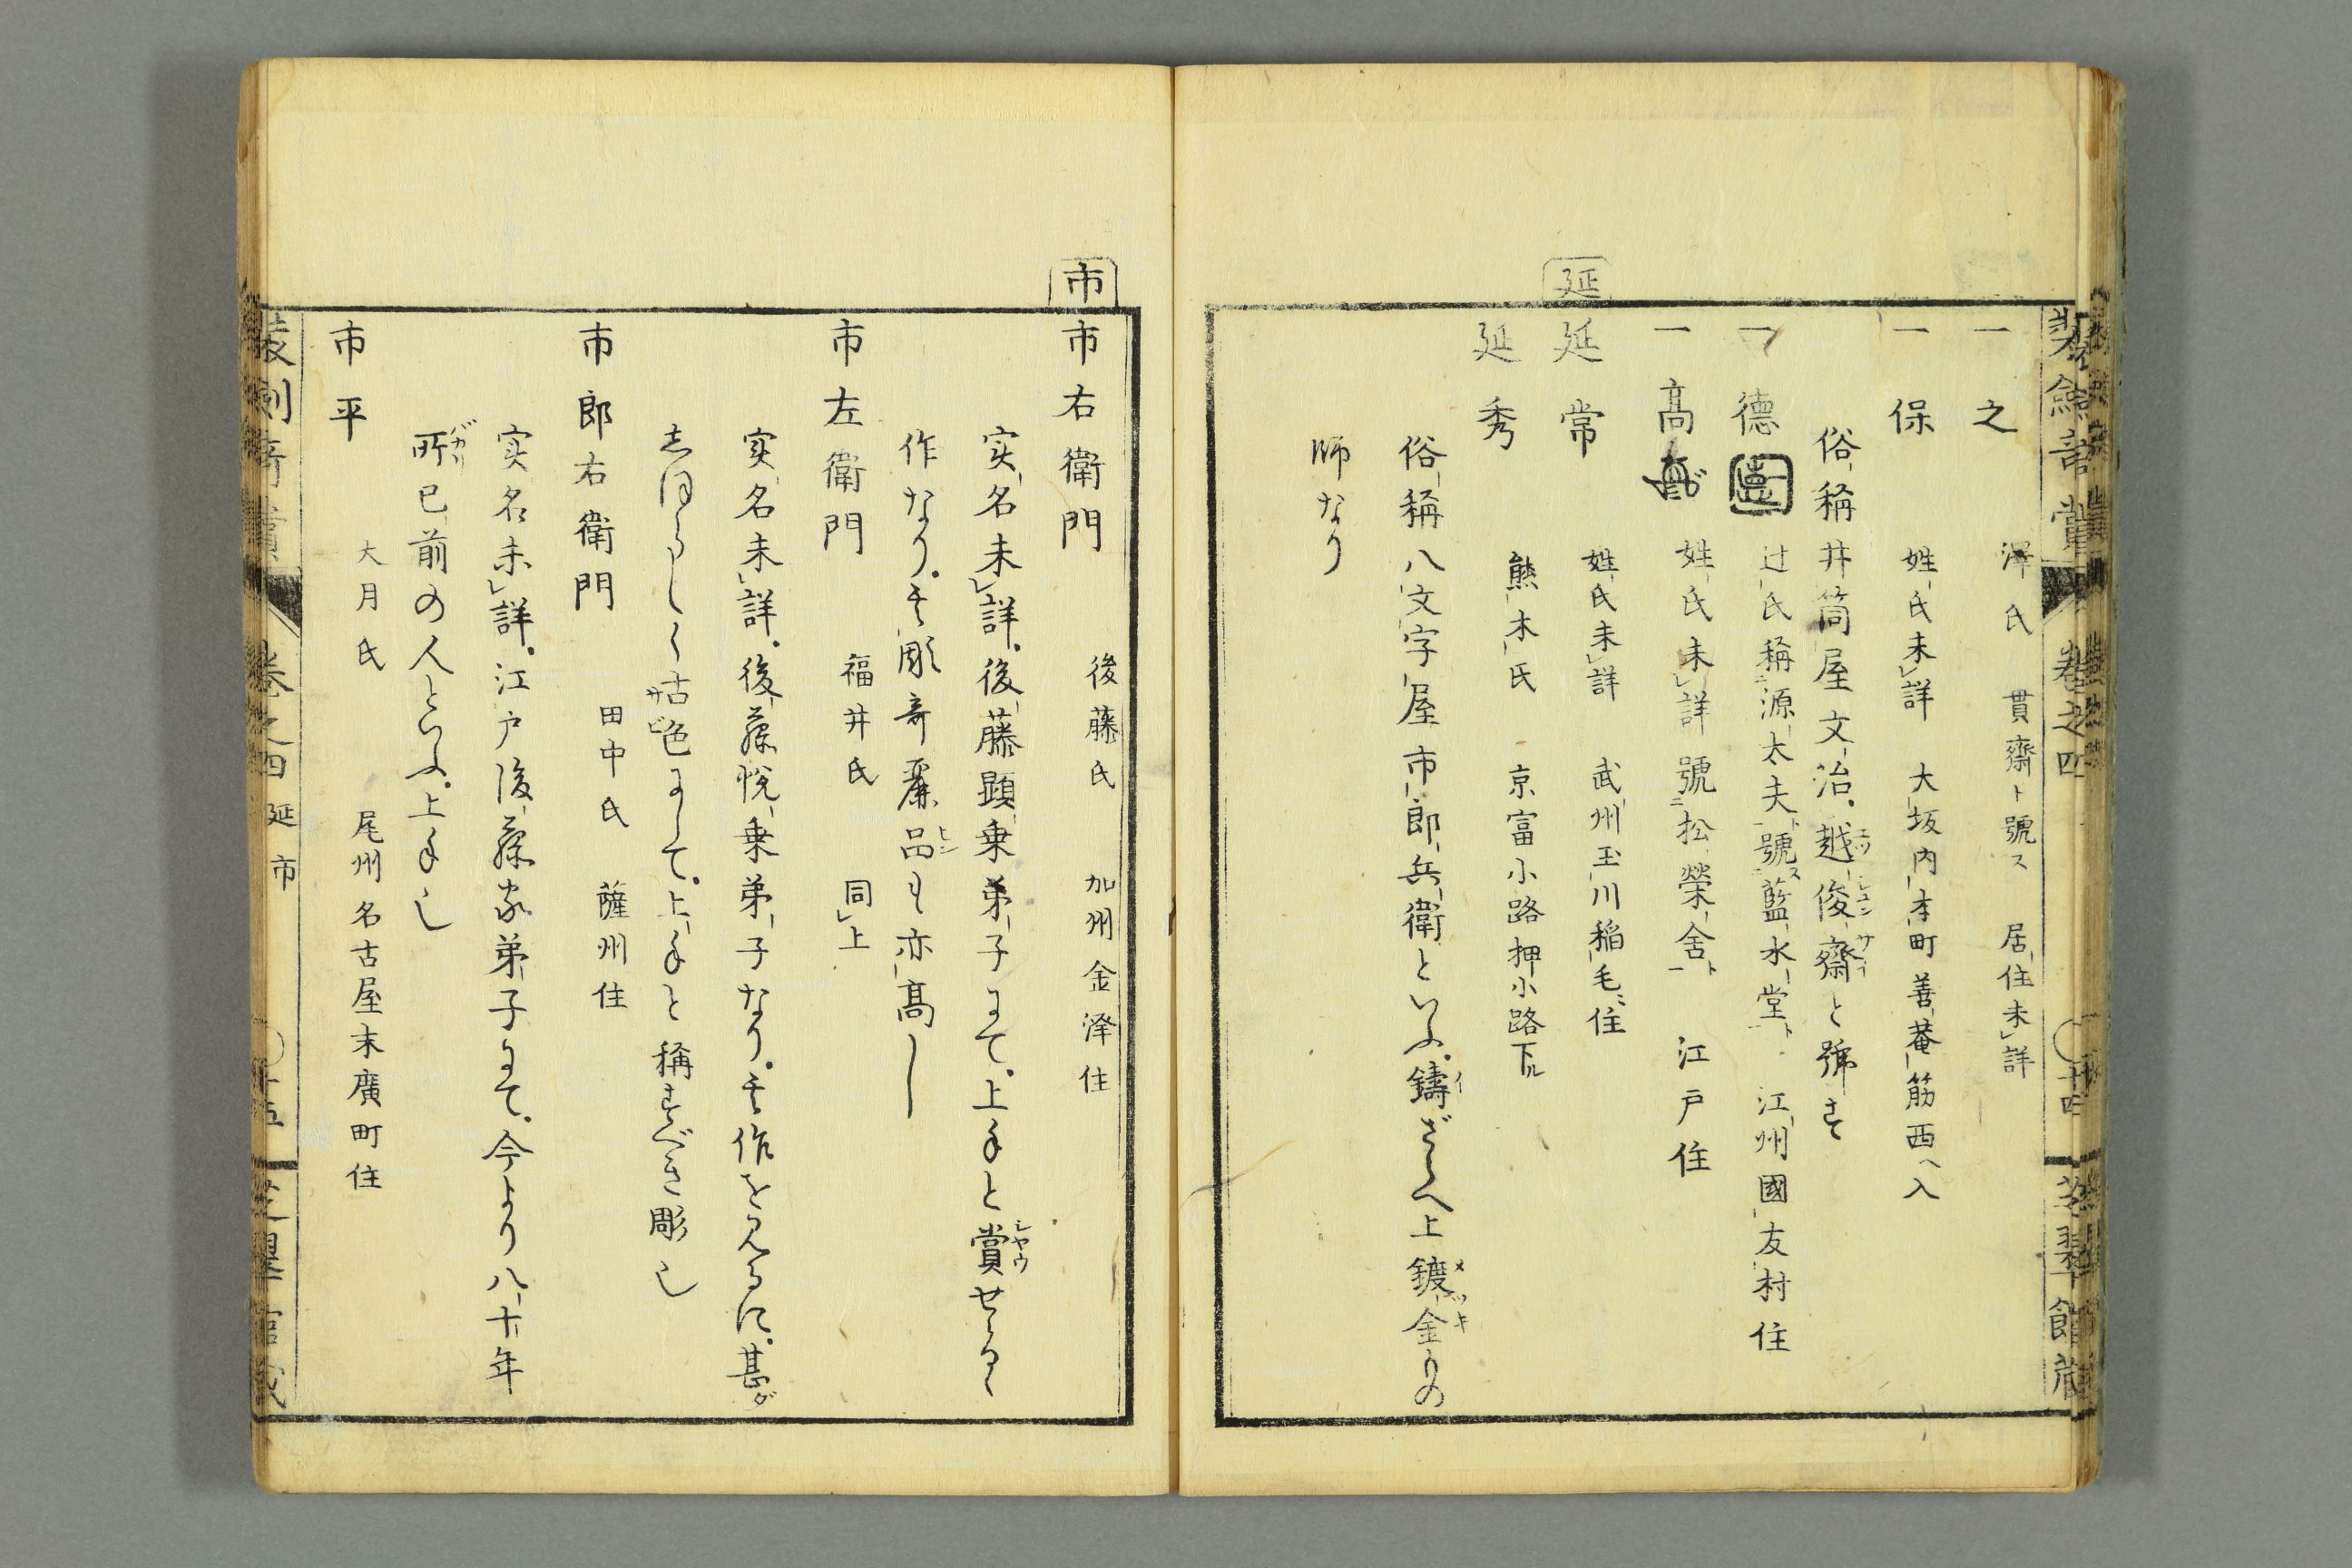 装劔竒賞
巻之四
十四
芝翠館蔵
一之　澤氏　貫齋ト號ス　居住未詳
一保　姓氏未詳　大坂内本町善菴筋西ヘ入
俗稱井筒屋文治。越俊齋と號す
エツシユンサイ
一德　辻氏稱源太夫ト號ス藍水堂ト　江州國友村住
一高　姓氏未詳號ニ松榮舎ト　江戸住
延
延常　姓氏未詳　武州玉川稲毛ニ住
延秀　熊木氏　京富小路押小路下ル
俗稱八文字屋市郎兵衛といふ。鋳ざらへ上鍍金りの
イ
メツキ
師なり
市
市右衛門　後藤氏　加州金澤住
実名未詳。後藤顕乗弟子にて。上手と賞せらる
シヤウ
作なり。其彫竒麗品も亦高し
ヒン
市左衛門　福井氏　同上
実名未詳。後藤悦乗弟子なり。其作を見るに。甚ダ
しほらしく古色にして。上手と稱すべき彫也
サビ
市郎右衛門　田中氏　薩州住
実名未詳。江戸後藤家弟子にて。今より八十年
所已前の人といふ。上手也
バカリ
市平　大月氏　尾州名古屋末廣町住
装劔竒賞
巻之四
延市
十五
芝翠館蔵